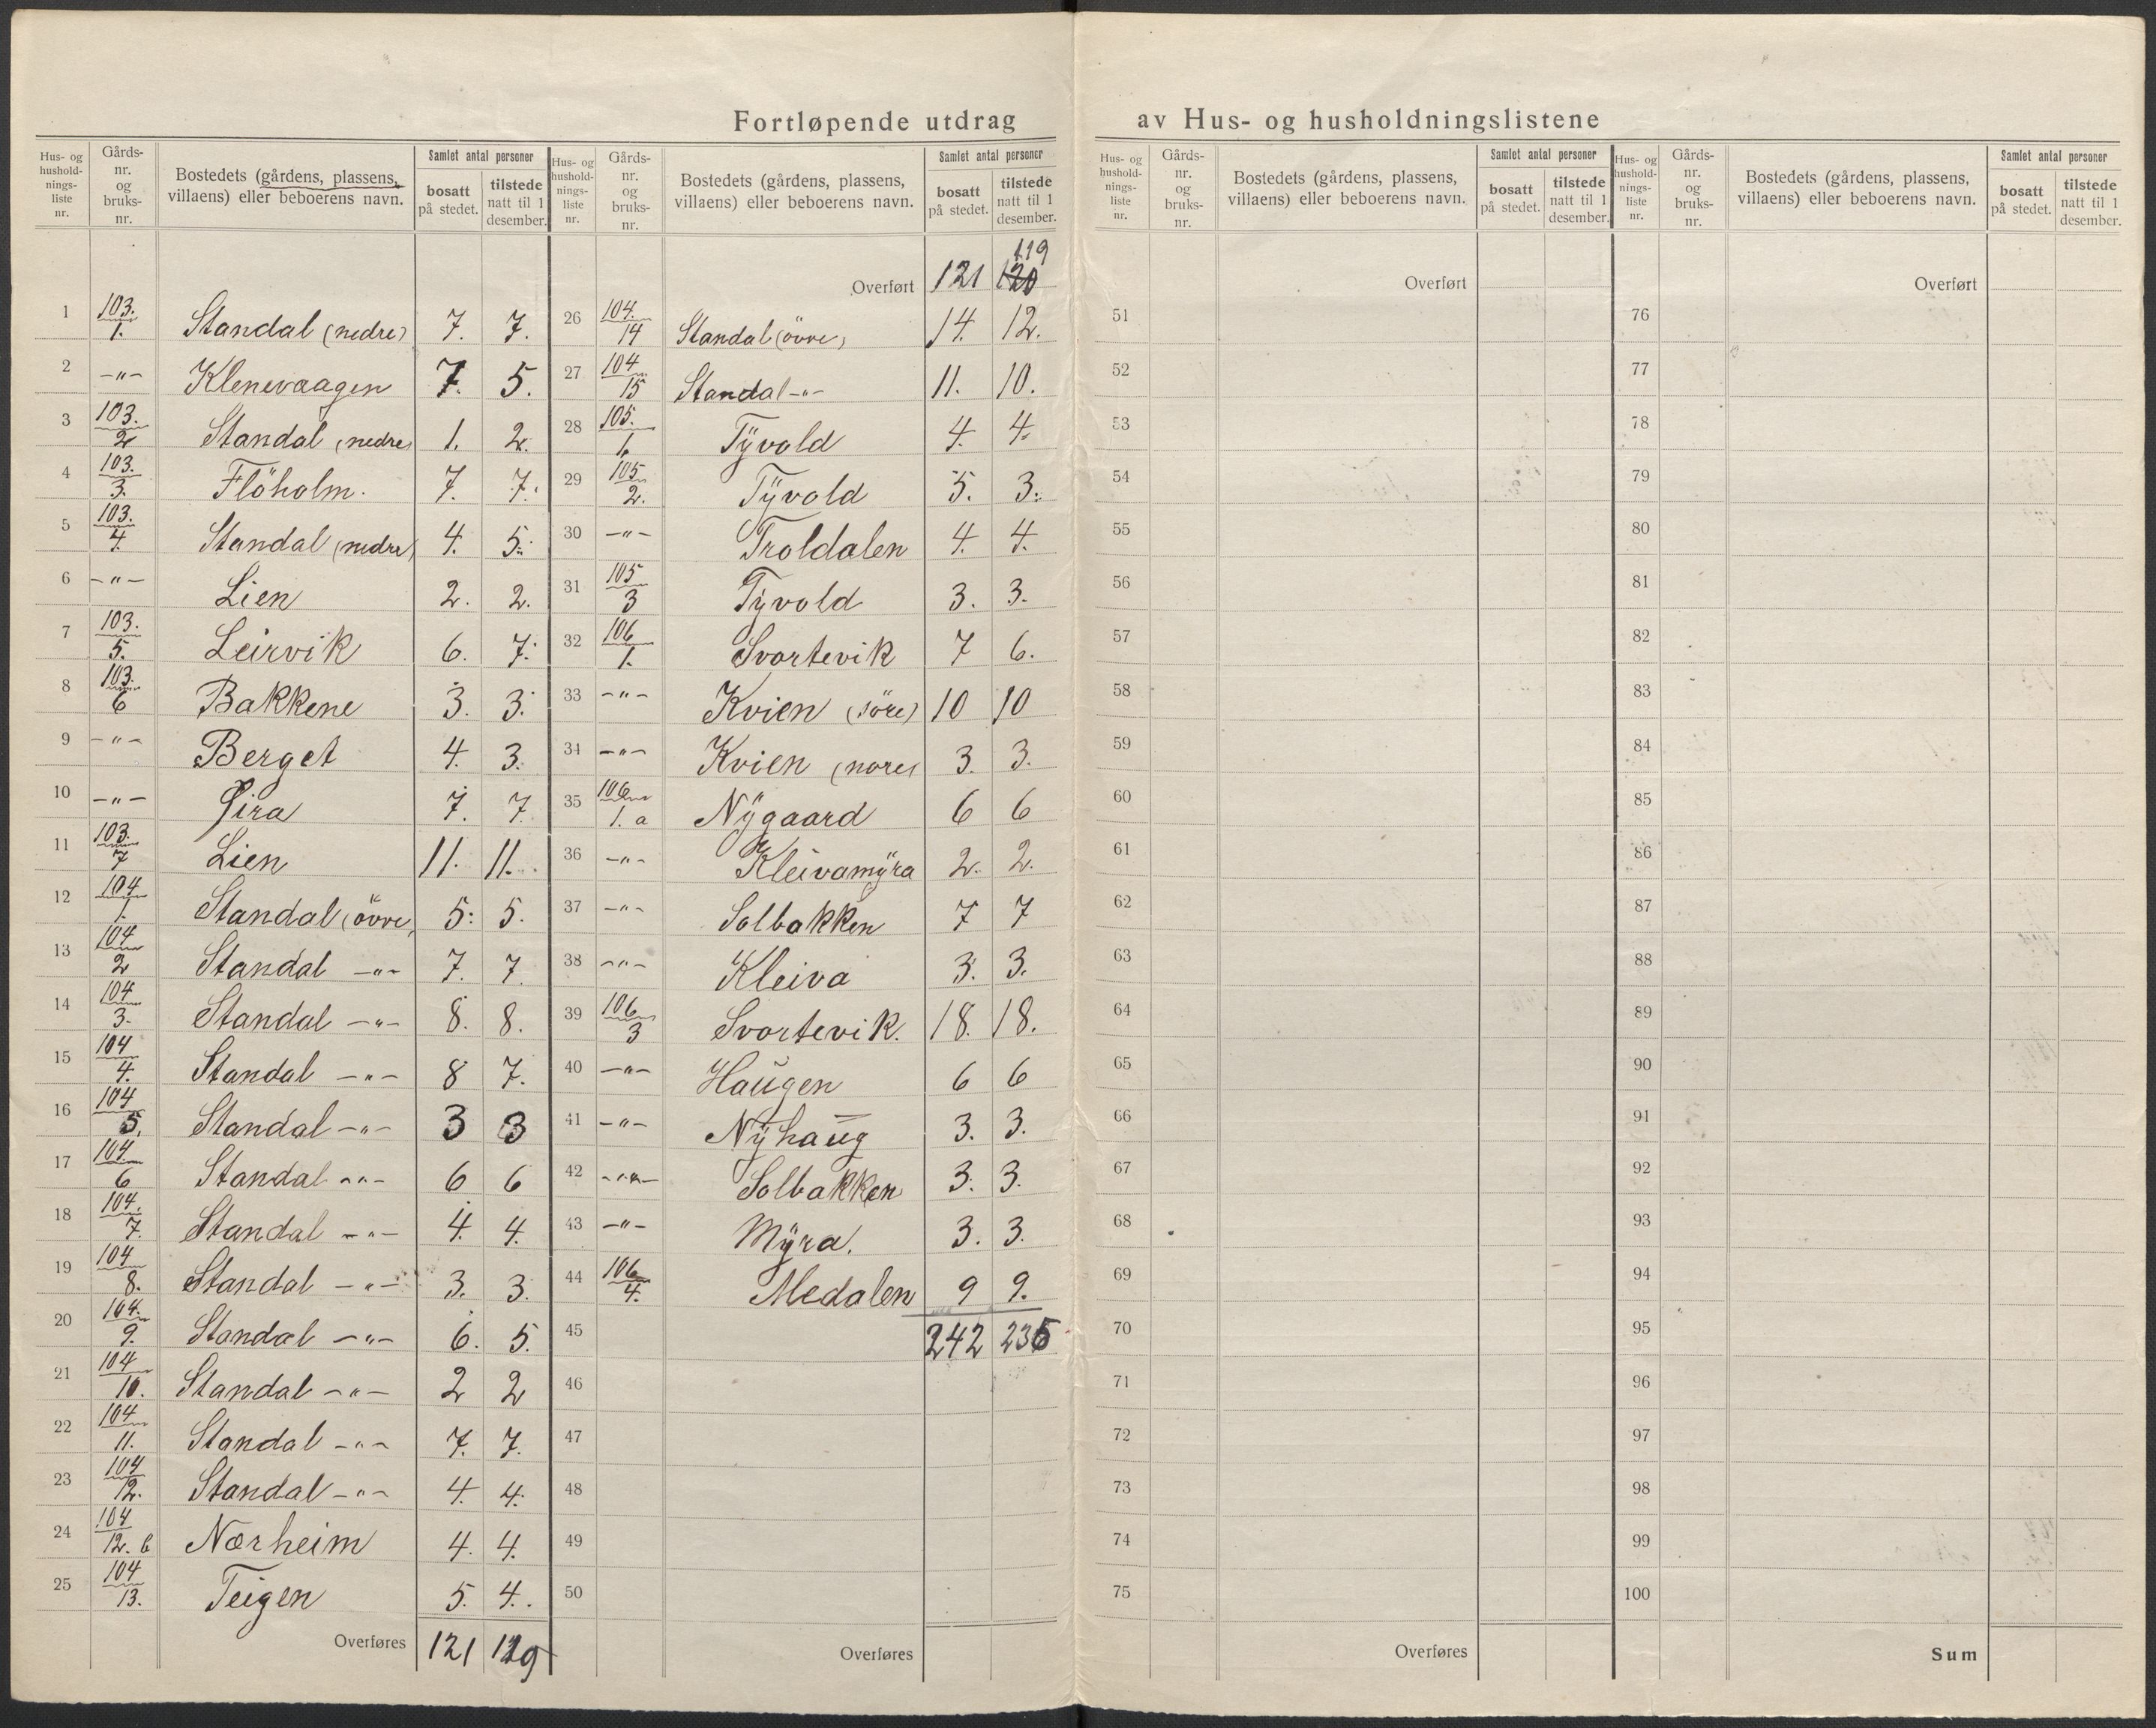 Fortløpende utdrag av Hus- og husholdningslistene
Hus- og husholdnings-liste nr. | Gårds-nr. og bruks-nr. | Bostedets (gårdens, plassens, villaens) eller beboerens navn. | Samlet antal personer | bosatt på stedet. | tilstede natt til 1 desember.
1 103./1. Standal (nedre) 7. 7.
2 -"- Klenevaagen 7. 5.
3 103./2 Standal (nedre) 1. 2.
4 103./3. Flöholm. 7. 7.
5 103./4. Standal (nedre) 4. 5.
6 -"- Lien 2. 2.
7 103./5. Leirvik 6. 7.
8 103./6 Bakkene 3. 3.
9 -"- Berget 4. 3.
10 -"- Øira 7. 7.
11 103./7 Lien 11. 11.
12 104/1. Standal (övre) 5. 5.
13 104/2 Standal -"- 7. 7.
14 104/3. Standal -"- 8. 8.
15 104/4. Standal -"- 8 7.
16 104/5. Standal -"- 3 3
17 104./6 Standal -"- 6 6
18 104./7. Standal -"- 4. 4.
19 104/8. Standal -"- 3. 3.
20 104./9. Standal -"- 6. 5.
21 104/10. Standal -"- 2 2
22 104/11. Standal -"- 7. 7.
23 104/12. Standal -"- 4. 4.
24 104/12. b Nørheim 4. 4.
25 104/13. Teigen 5. 4.
Overføres 121 119
Hus- og husholdnings-liste nr. | Gårds-nr. og bruks-nr. | Bostedets (gårdens, plassens, villaens) eller beboerens navn. | Samlet antal personer | bosatt på stedet. | tilstede natt til 1 desember.
119
Overført 121 120
26 104./14 Standal (övre) 14. 12.
27 104/15 Standal -"- 11. 10.
28 105./1. Tÿvold 4. 4.
29 105/2. Tÿvold 5. 3.
30 -"- Troldalen 4. 4.
31 105/3 Tÿvold 3. 3.
32 106/1. Svortevik 7 6.
33 -"- Kvien (söre) 10 10
34 -"- Kvien (nore) 3. 3.
35 106/1. a Nÿgaard 6 6
36 -"- Kleivamÿra 2. 2.
37 -"- Solbakken 7 7
38 -"- Kleiva 3. 3.
39 106/3 Svortevik. 18. 18.
40 -"- Haugen 6 6
41 -"- Nÿhaug 3. 3.
42 -"- Solbakken 3. 3.
43 -"- Mÿra. 3. 3.
44 106/4. Medalen 9 9.
45 242 235
46
47
48
49
50
Overføres
Hus- og husholdnings-liste nr. | Gårds-nr. og bruks-nr. | Bostedets (gårdens, plassens, villaens) eller beboerens navn. | Samlet antal personer | bosatt på stedet. | tilstede natt til 1 desember.
Overført
51
52
53
54
55
56
57
58
59
60
61
62
63
64
65
66
67
68
69
70
71
72
73
74
75
Overføres
Hus- og husholdnings-liste nr. | Gårds-nr. og bruks-nr. | Bostedets (gårdens, plassens, villaens) eller beboerens navn. | Samlet antal personer | bosatt på stedet. | tilstede natt til 1 desember.
Overført
76
77
78
79
80
81
82
83
84
85
86
87
88
89
90
91
92
93
94
95
96
97
98
99
100
Sum